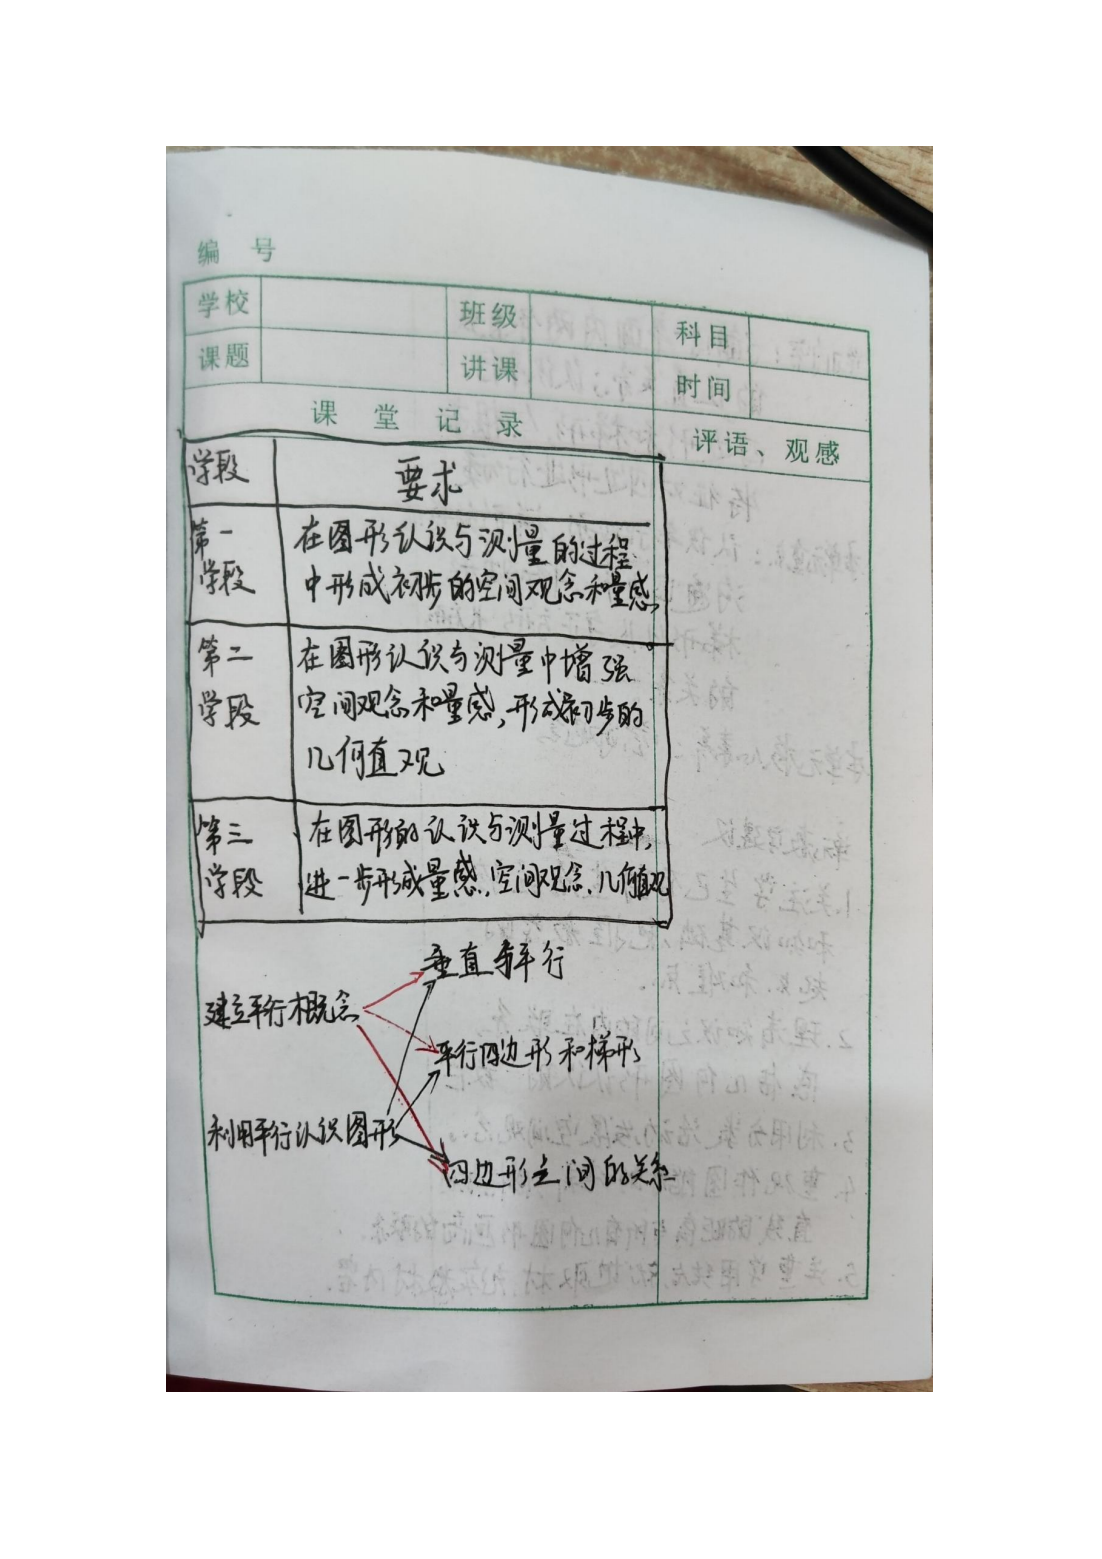 编 号
学校 班级 科目
课题 讲课 时间
课 堂 记 录 评语、观感
学段 要求
第一学段
在图形认识与测量的过程
中形成初步的空间观念和量感
第二学段
在图形认识与测量中增强
空间观念和量感,形成初步的
几何直观
第三学段
在图形的认识与测量过程中,
进一步形成量感、空间观念、几何直观
垂直与平行
建立平行概念
平行四边形和梯形
利用平行认识图形
四边形之间的关系